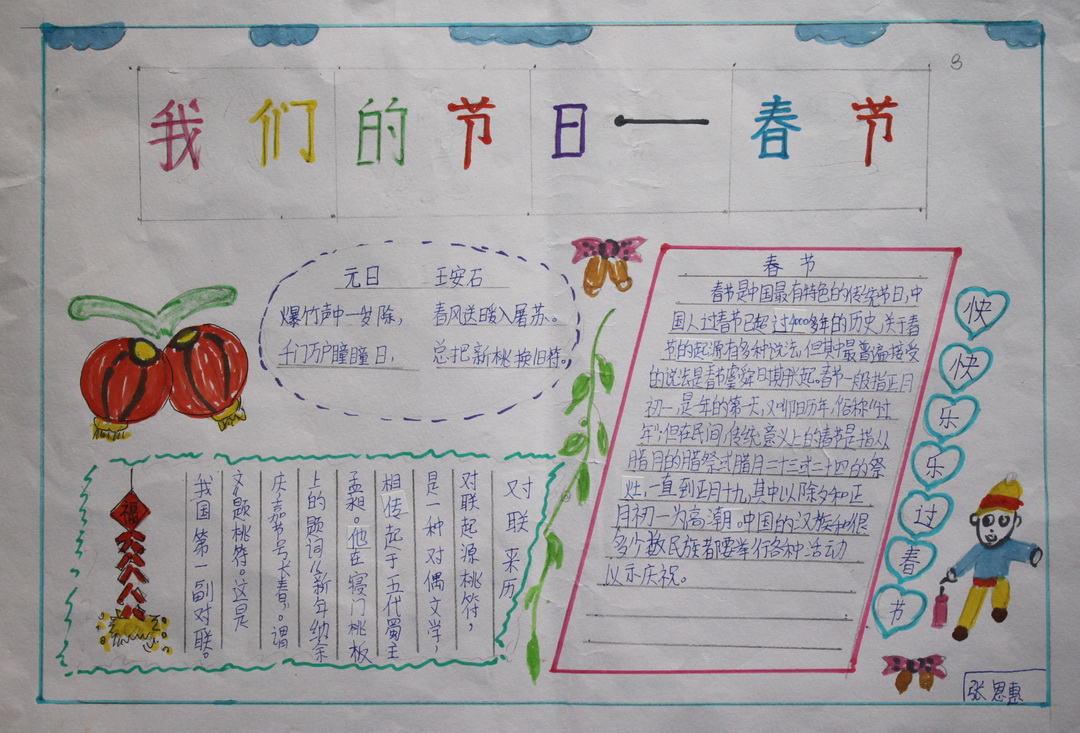 8
我们的节日——春节
元日 王安石
爆竹声中一岁除, 春风送暖入屠苏。
千门万户瞳瞳日, 总把新桃换旧符。
春节
春节是中国最有特色的传统节日,中
国人过春节已超过4000多年的历史,关于春
节的起源有多种说法,但其中最普遍接受
的说法是春节虞舜日期兴起。春节一般指正月
初一,是一年的第一天,又叫阴历年,俗称“过
年”;但在民间,传统意义上的春节是指从
腊月的腊祭或腊月二十三或二十四的祭
灶,一直到正月十九,其中以除夕和正
月初一为高潮。中国的汉族和很
多少数民族都要举行各种活动
以示庆祝。
快
快
乐
乐
过
春
节
对联来历
对联起源桃符,
是一种对偶文学,
相传起于五代蜀主
孟昶。他在寝门桃板
上的题词“新年纳余
庆,嘉节号长春”。谓
文“题桃符”。这是
我国第一副对联。
福
张恩惠